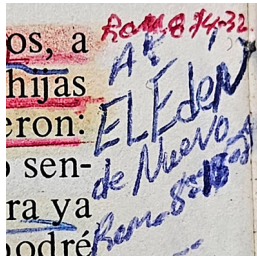 os, a
hijas
eron:
o sen-
ra ya
podré
Rom. 8 14-32
A
EL Eden
de Nuevo
Rom. 8:18-